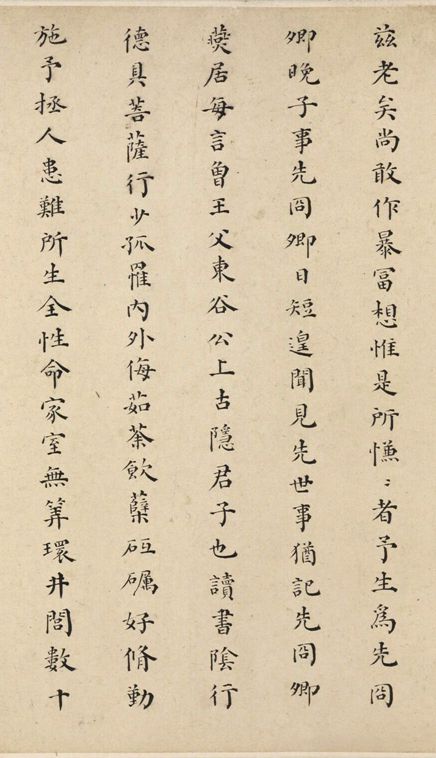 茲老矣尚敢作暴富想惟是所慊〻者予生為先冏
卿晚子事先冏卿日短遑聞見先世事猶記先冏卿
燕居每言曾王父東谷公上古隱君子也讀書陰行
德具菩薩行少孤罹內外侮茹荼飲蘖砥礪好脩勤
施予拯人患難所生全性命家室無筭環井閭數十